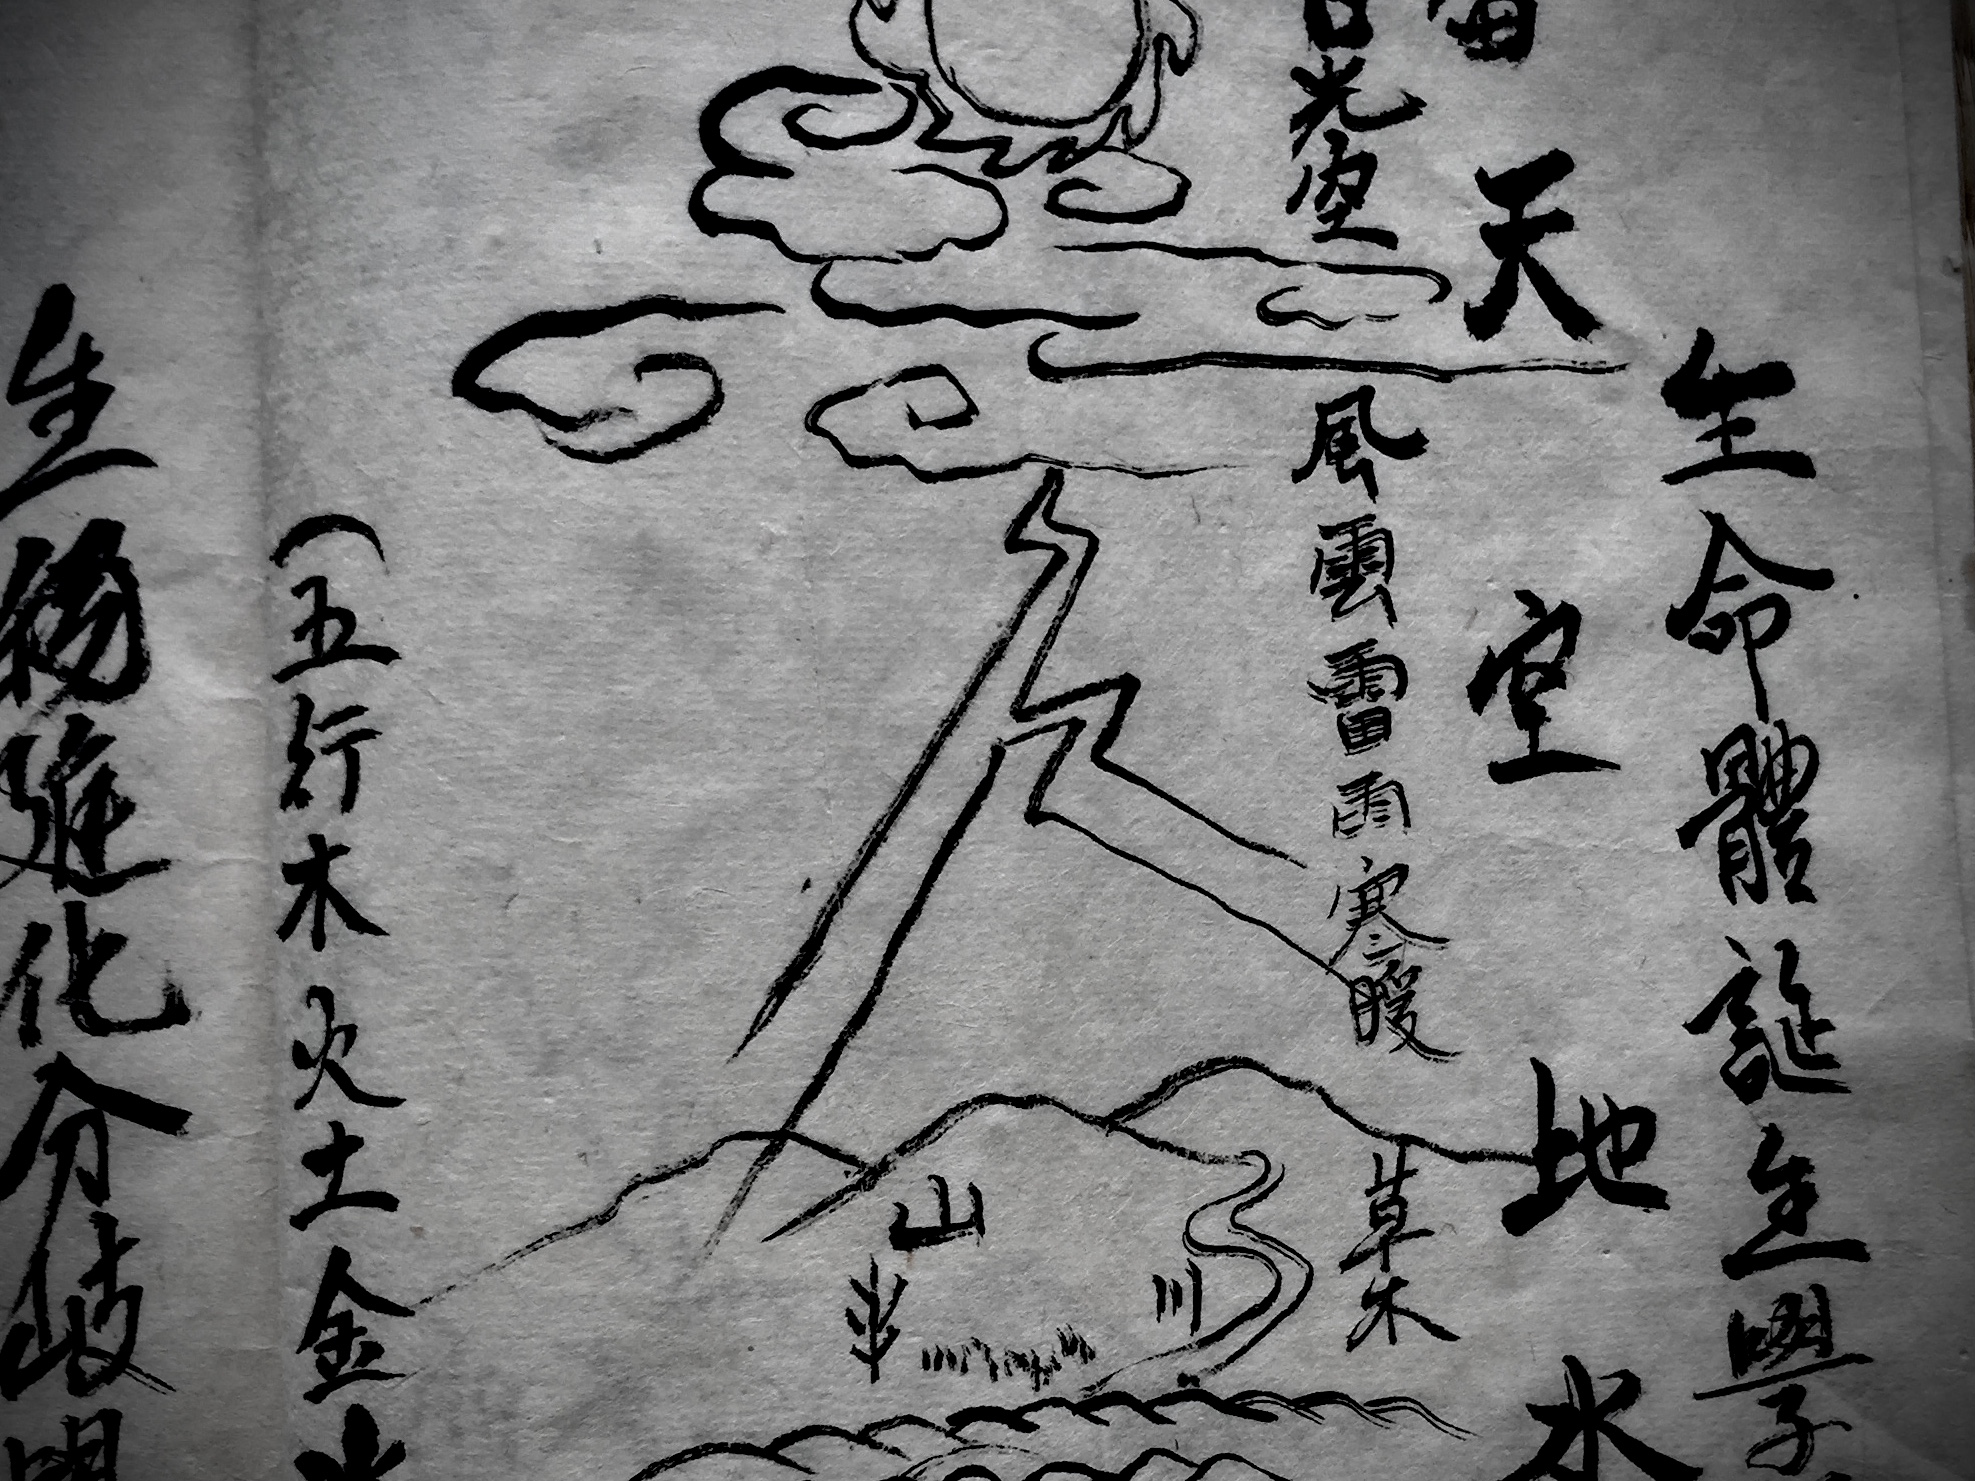 生命體誕生學
天
空
地
水
日光空
風雲雷雨寒暖
草木
川
山
(五行木火土金水
生物進化分岐